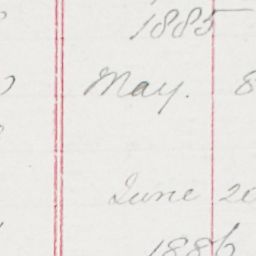 1885
May. 8
June 20
1886